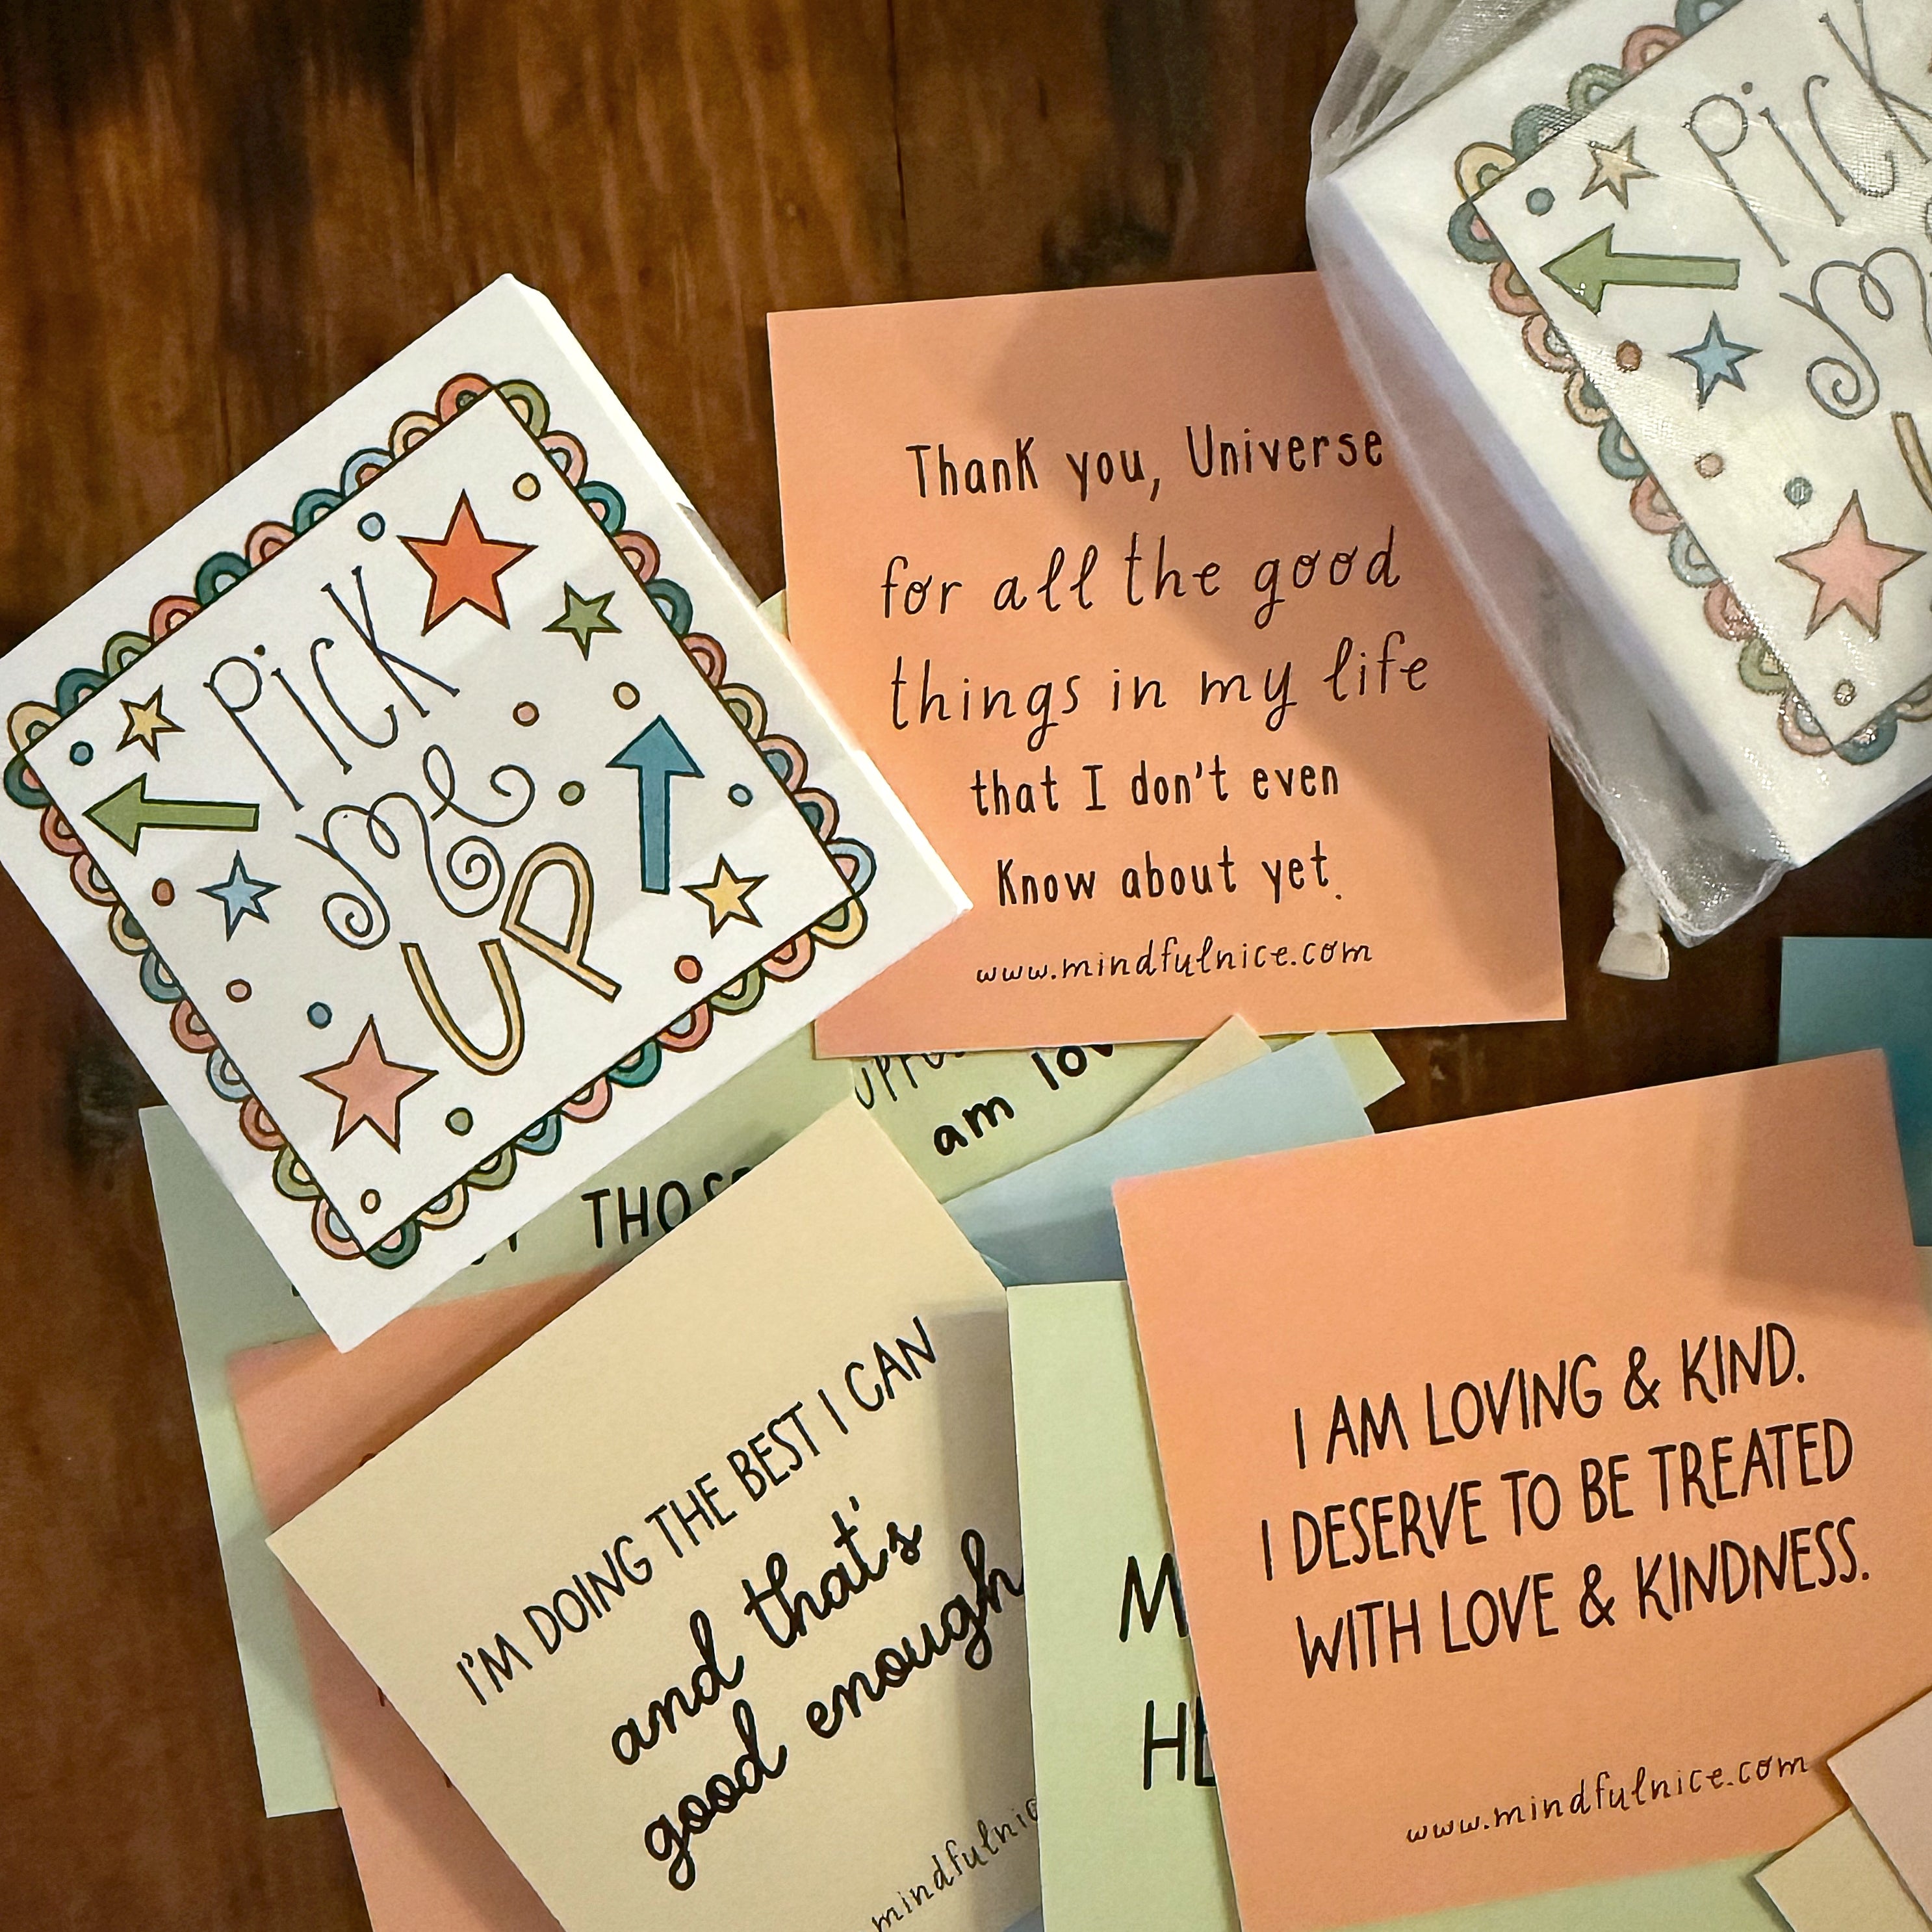 PiCK
me
UP
PiCK
Thank you, Universe
for all the good
things in my life
that I don't even
Know about yet.
www.mindfulnice.com
am
I'M DOING THE BEST I CAN
and that's
good enough
I AM LOVING & KIND.
I DESERVE TO BE TREATED
WITH LOVE & KINDNESS.
www.mindfulnice.com